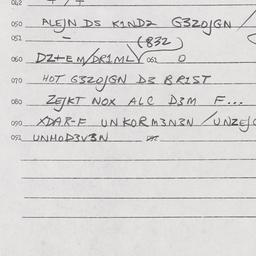 050 ALEJN DS K1ND2 G3ZOJGN /
051 (832)
060 DZ+EM/DR1ML 061
070 HOT G3ZOJGN D3 BR1ST
080 ZEJKT NOX ALC D3M F...
090 XDAR-F UNKORM3N3N /UNZEJC
091 UNHOD3V3N